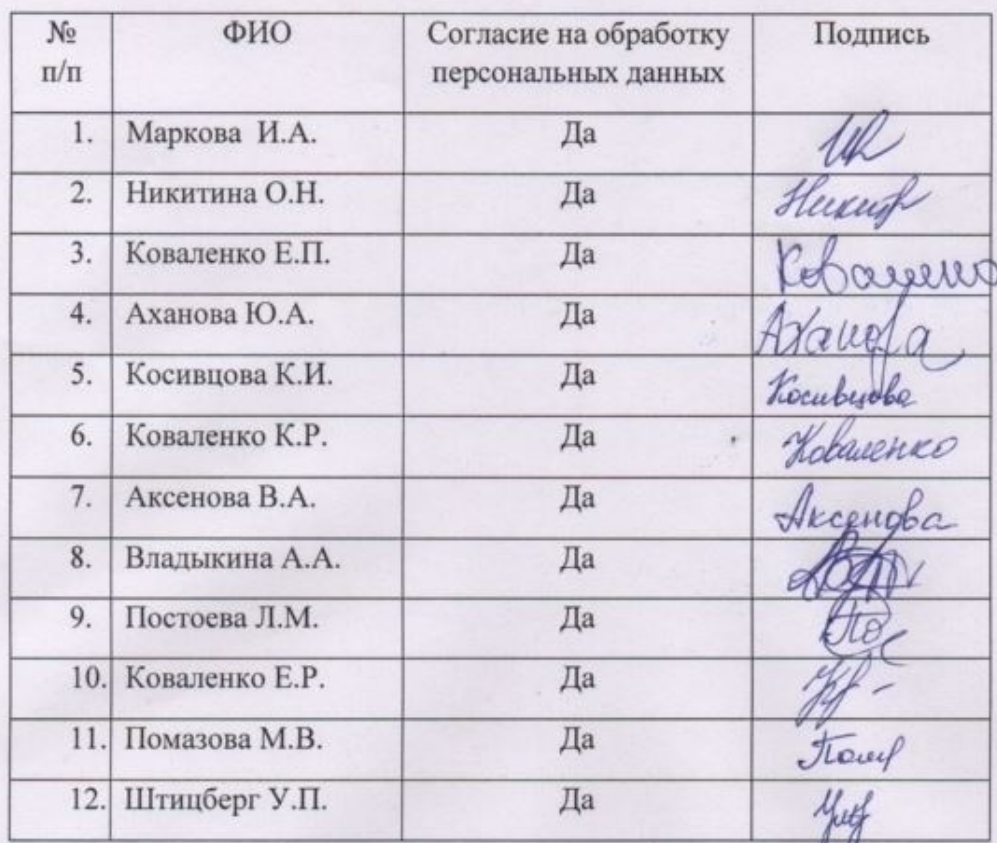 № п/п ФИО Согласие на обработку персональных данных Подпись
1. Маркова И.А. Да
2. Никитина О.Н. Да Никит
3. Коваленко Е.П. Да Коваленко
4. Аханова Ю.А. Да Аханова
5. Косивцова К.И. Да Косивцова
6. Коваленко К.Р. Да Коваленко
7. Аксенова В.А. Да Аксенова
8. Владыкина А.А. Да
9. Постоева Л.М. Да По
10. Коваленко Е.Р. Да
11. Помазова М.В. Да
12. Штицберг У.П. Да